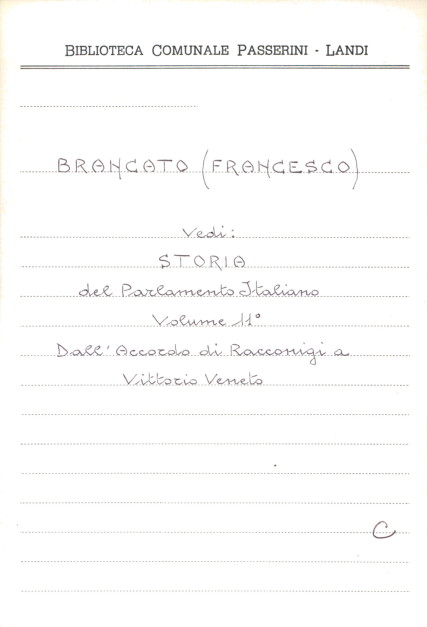 BIBLIOTECA COMUNALE PASSERINI - LANDI
BRANCATO (FRANCESCO)
Vedi:
STORIA
del Parlamento Italiano
Volume 11°
Dall'Accordo di Racconigi a
Vittorio Veneto
C